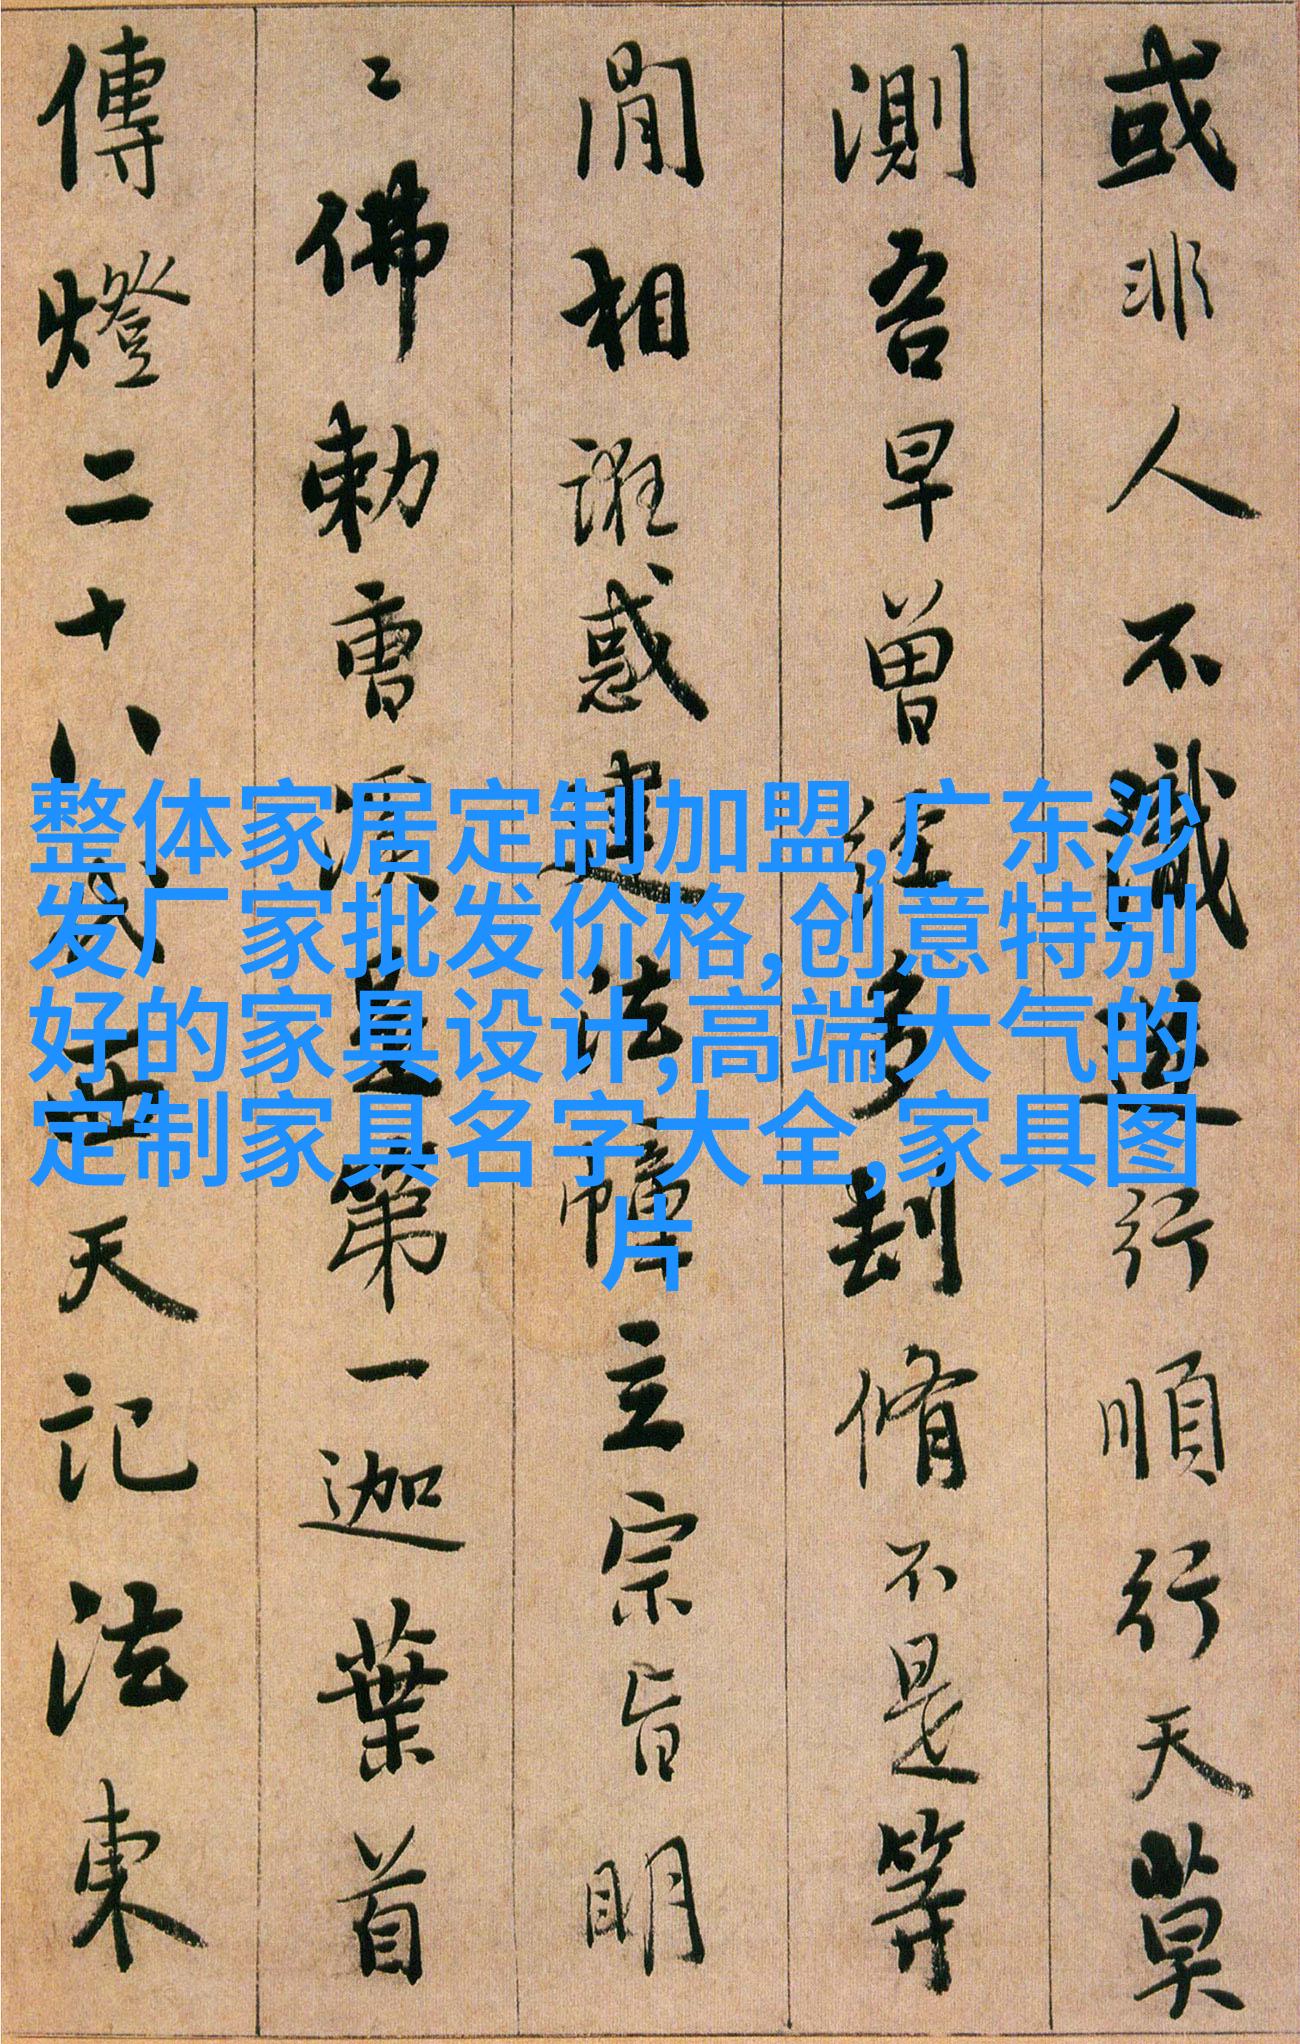 或非人不識逆行順行天莫
測吾早曾經多刦脩不是等
閒相誑惑建法幢立宗旨明
〻佛勅曹溪是第一迦葉首
傳燈二十八代西天記法東
整体家居定制加盟,广东沙
发厂家批发价格,创意特别
好的家具设计,高端大气的
定制家具名字大全,家具图
片